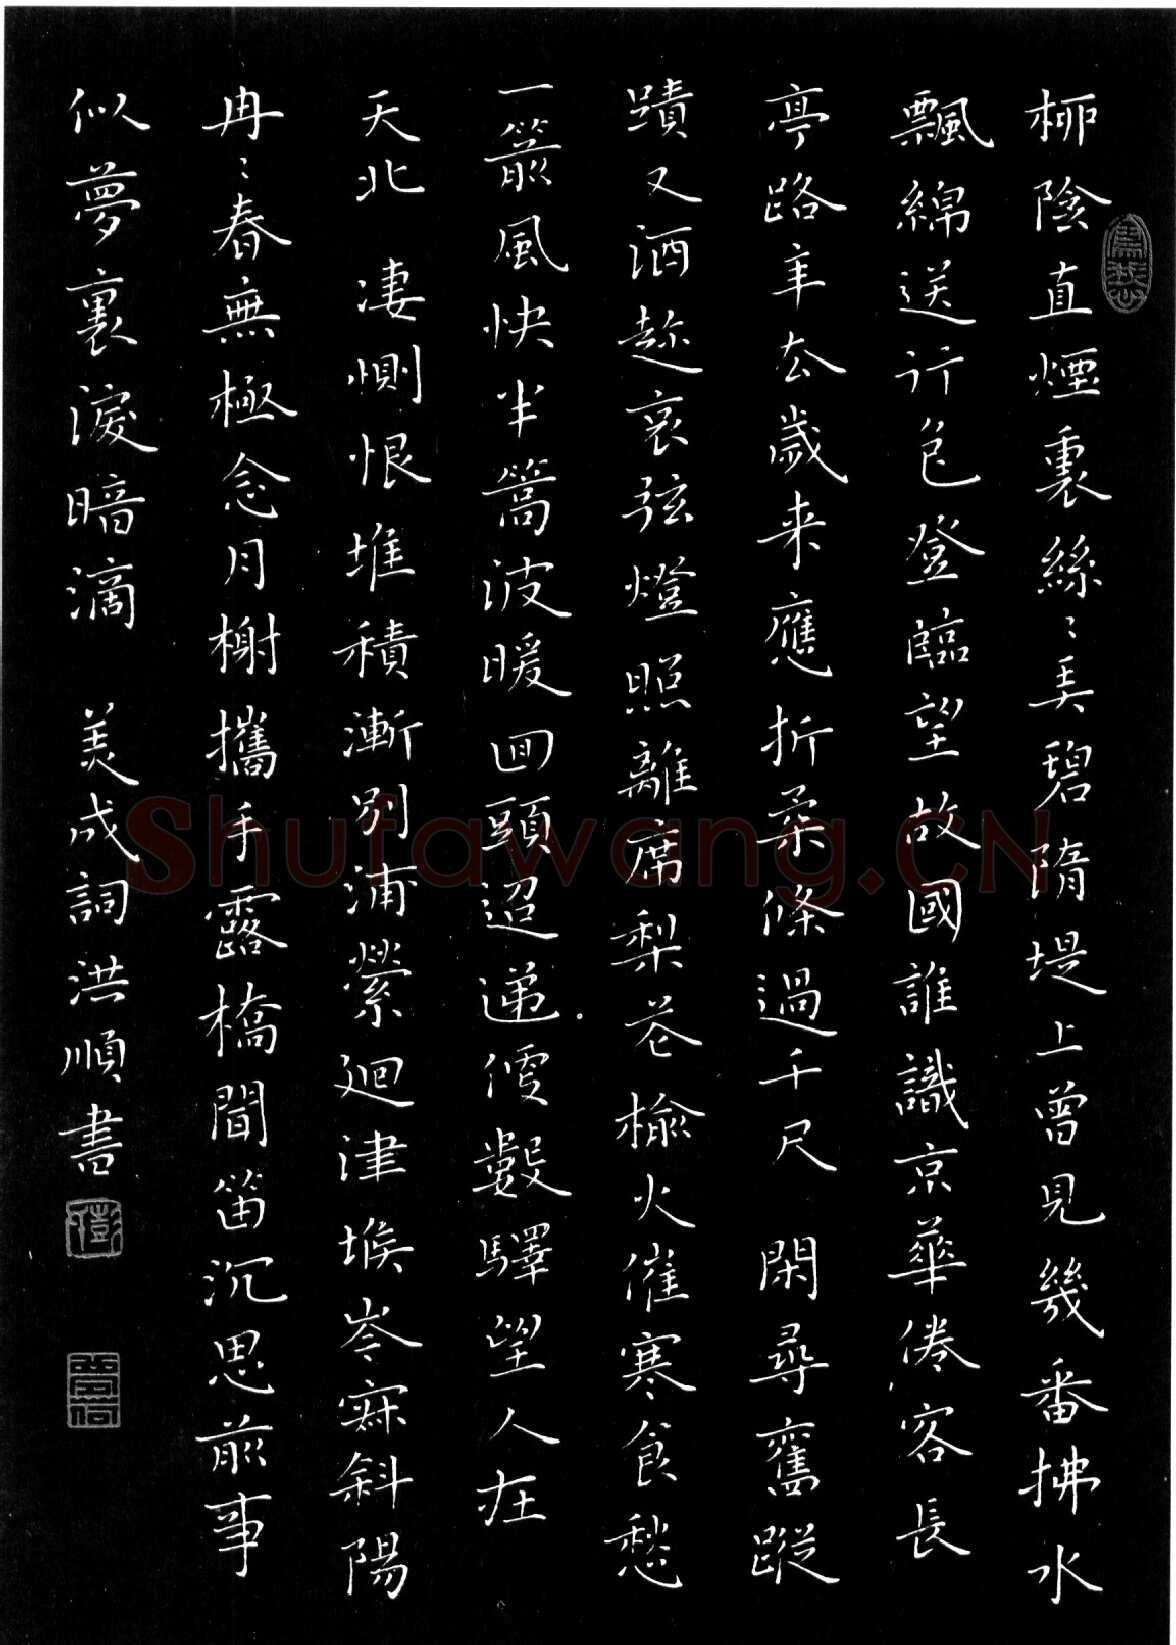 柳陰直煙裏絲〻弄碧隋堤上曾見幾番拂水
飄綿送行色登臨望故國誰識京華倦客長
亭路年去歲来應折柔條過千尺 閑尋舊蹤
蹟又酒趁哀弦燈照離席梨花榆火催寒食愁
一箭風快半篙波暖回頭迢遞便數驛望人在
天北 凄惻恨堆積漸別浦縈廻津堠岑寂斜陽
冉〻春無極念月榭攜手露橋聞笛沉思前事
似夢裏淚暗滴 美成詞洪順書
Shufawang.CN